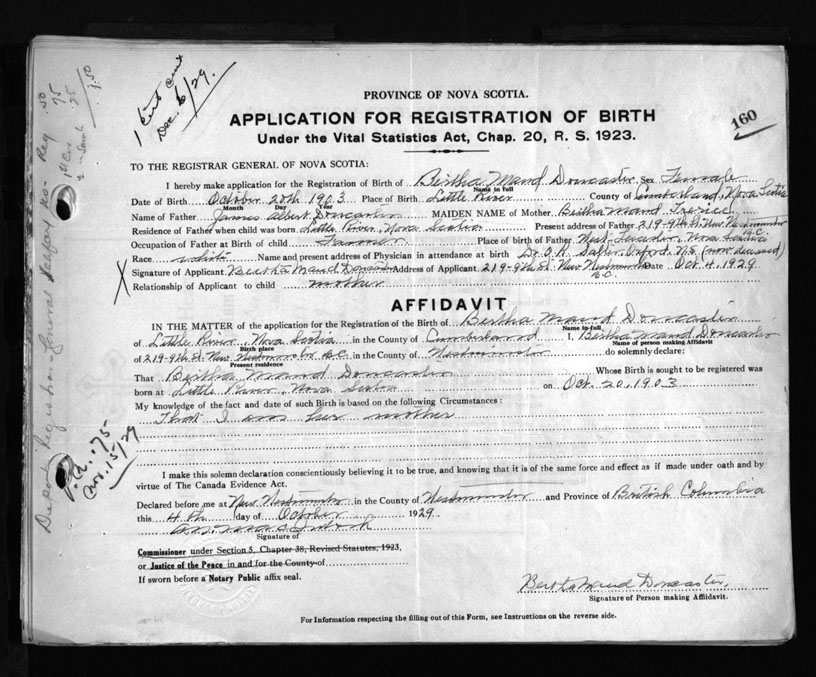 1 Cert
Dec. 6/29.
.50
75
25
1.50
PROVINCE OF NOVA SCOTIA.
160
APPLICATION FOR REGISTRATION OF BIRTH
Under the Vital Statistics Act, Chap. 20, R. S. 1923.
TO THE REGISTRAR GENERAL OF NOVA SCOTIA:
I hereby make application for the Registration of Birth of Bertha Maud Doncaster Sex Female
Name in full
Date of Birth October 20th 1903 Place of Birth Little River County of Cumberland, Nova Scotia
Month Day Year
Name of Father James Albert Doncaster MAIDEN NAME of Mother Bertha Maud
Residence of Father when child was born Little River, Nova Scotia Present address of Father 219-9th St. New Westminster
B.C.
Occupation of Father at Birth of child Farmer Place of birth of Father West Nova Scotia
Race white Name and present address of Physician in attendance at birth Dr. O. Oxford, N.S. (now deceased)
Signature of Applicant Bertha Maud Doncaster Address of Applicant 219-9th St. New Westminster Date Oct 4, 1929
B.C.
Relationship of Applicant to child mother
AFFIDAVIT
IN THE MATTER of the application for the Registration of the Birth of Bertha Maud Doncaster
Name in full
of Little River, Nova Scotia in the County of Cumberland I, Bertha Maud Doncaster
Birth place Name of person making Affidavit
of 219-9th St. New Westminster B.C. in the County of Westminster do solemnly declare:
Present residence
That Bertha Maud Doncaster Whose Birth is sought to be registered was
born at Little River, Nova Scotia on Oct. 20, 1903
My knowledge of the fact and date of such Birth is based on the following Circumstances:
That I am her mother
I make this solemn declaration conscientiously believing it to be true, and knowing that it is of the same force and effect as if made under oath and by
virtue of The Canada Evidence Act.
Declared before me at New Westminster in the County of Westminster and Province of British Columbia
this 4th day of October 1929
Signature of
Commissioner under Section 5, Chapter 38, Revised Statutes, 1923,
or Justice of the Peace in and for the County of
If sworn before a Notary Public affix seal.
Bertha Maud Doncaster.
Signature of Person making Affidavit.
For Information respecting the filling out of this Form, see Instructions on the reverse side.
Pd. .75
Nov. 15/29
Deputy Registrar General Halifax